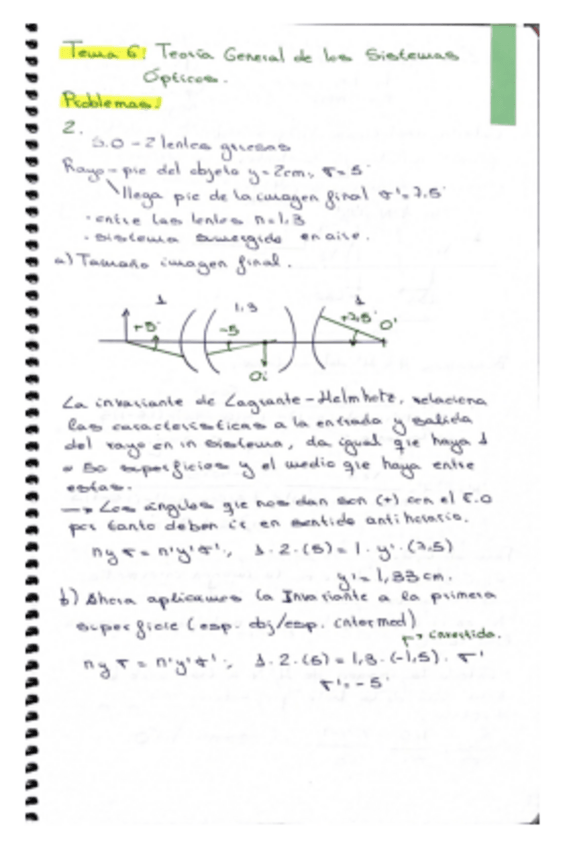 Tema 6: Teoría General de los Sistemas
Ópticos.
Problemas:
2.
S.O - 2 lentes gruesas
Rayo - pie del objeto y=2cm, σ=5°
llega pie de la imagen final σ'=7,5°
· entre las lentes n=1,3
· sistema sumergido en aire.
a) Tamaño imagen final.
1 1,3 1
+5° -5 +7,5° O'
Oi
La invariante de Lagrante-Helmhotz, relaciona
las características a la entrada y salida
del rayo en un sistema, da igual que haya 1
o 50 superficies y el medio que haya entre
estas.
→ Los ángulos que nos dan son (+) con el S.O
por tanto deben ir en sentido antihorario.
nyσ = n'y'σ'; 1·2·(5) = 1·y'·(7,5)
y' = 1,33 cm.
b) Ahora aplicamos la Invariante a la primera
superficie (esp. obj/esp. intermed)
→ invertida.
nyσ = n'y'σ'; 1·2·(5) = 1,3·(-1,5)·σ'
σ' = -5°